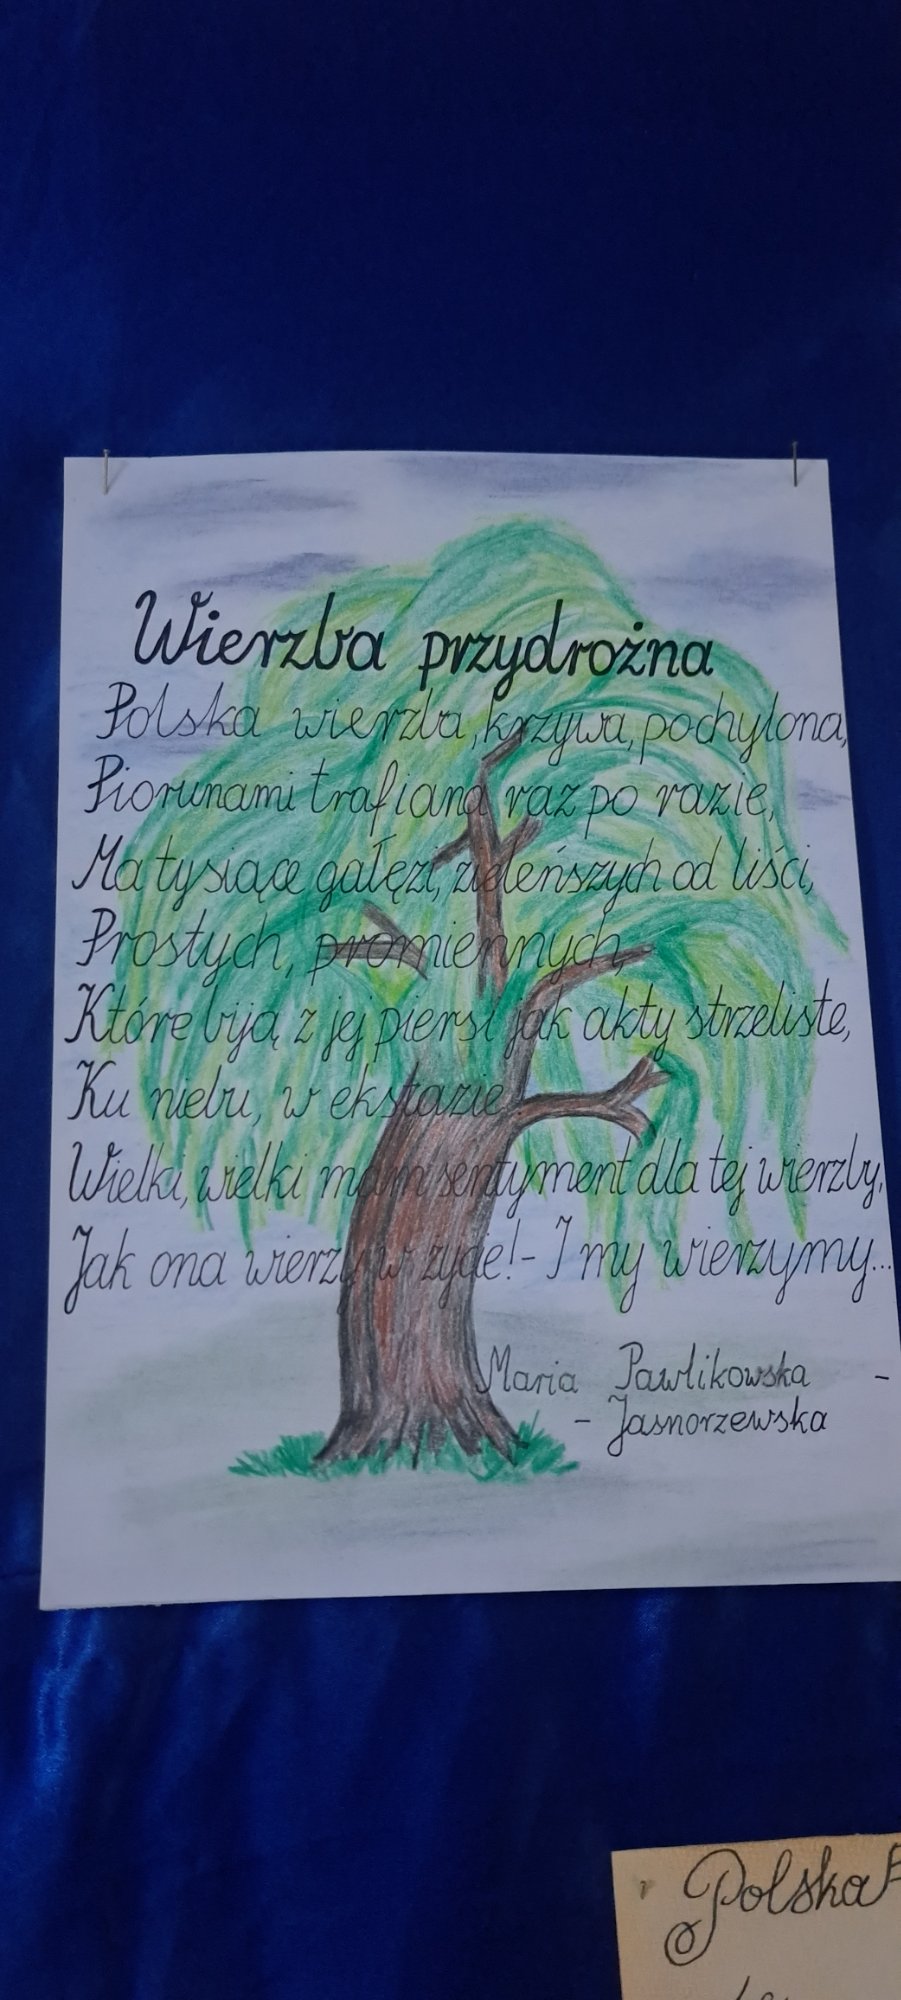 Wierzba przydrożna
Polska wierzba, krzywa, pochylona,
Piorunami trafiana raz po razie,
Ma tysiące gałęzi, zieleńszych od liści,
Prostych, promiennych,
Które biją z jej piersi jak akty strzeliste,
Ku niebu, w ekstazie.
Wielki, wielki mam sentyment dla tej wierzby,
Jak ona wierzy w życie! - I my wierzymy...
Maria Pawlikowska -
- Jasnorzewska
Polska